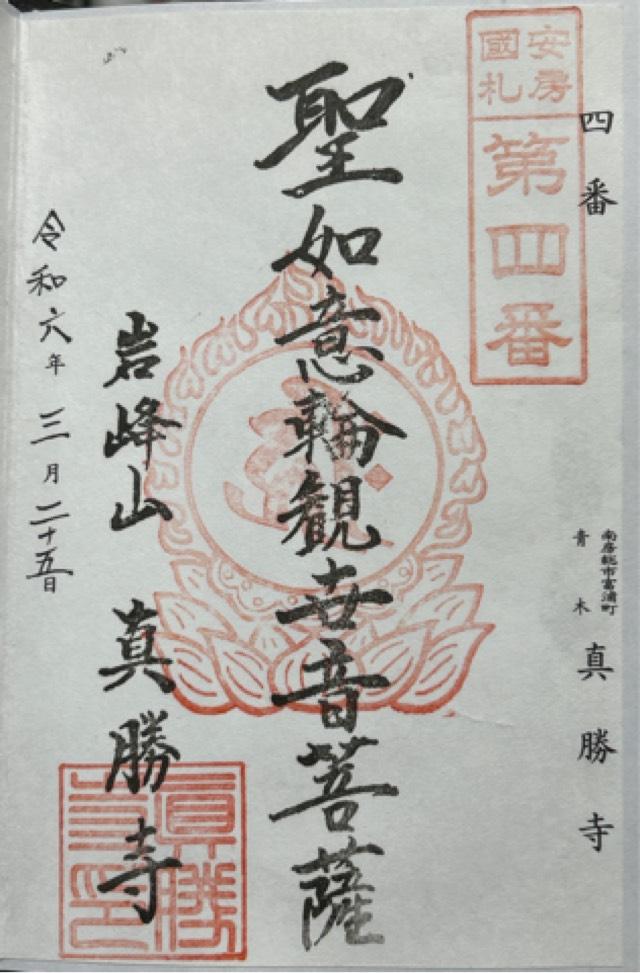 四番
南房総市富浦町
青木
真勝寺
安房
國札
第四番
聖如意輪観世音菩薩
岩峰山 真勝寺
令和六年 三月二十五日